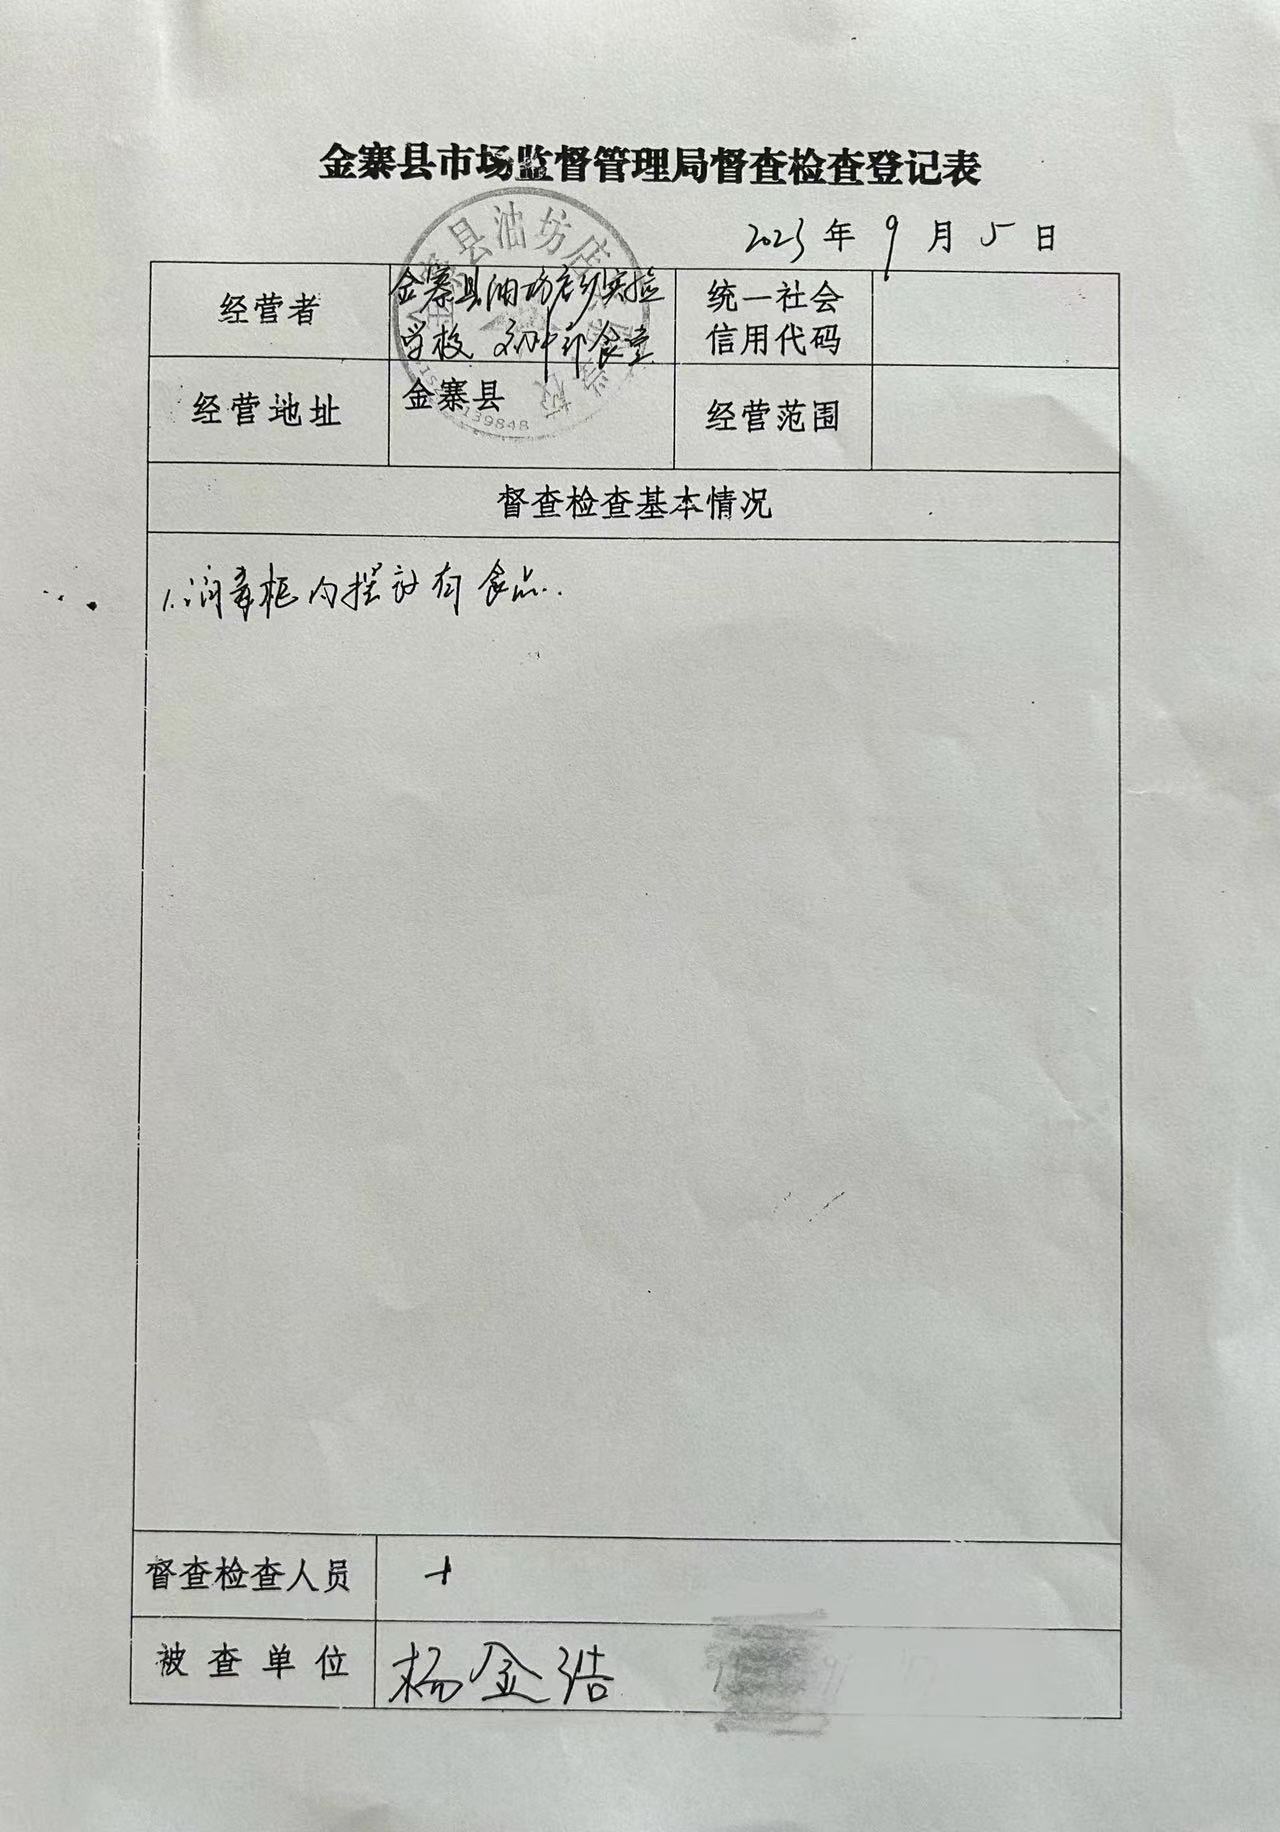 金寨县市场监督管理局督查检查登记表
2023年9月5日
经营者
金寨县油坊店乡实验
学校 初中部食堂
统一社会
信用代码
经营地址
金寨县
经营范围
督查检查基本情况
1.消毒柜内摆放有食品.
督查检查人员
被查单位
杨金浩
金寨县油坊店
139848